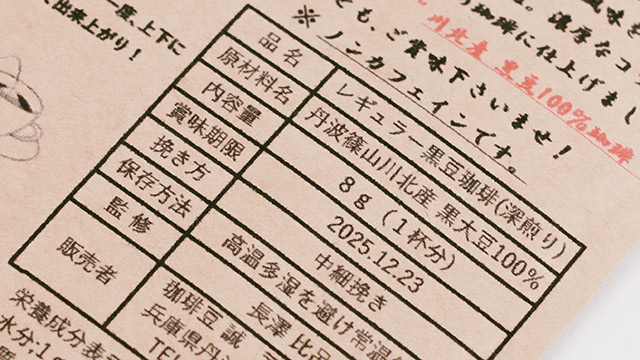 一度、上下に
出来上がり!
風味を
濃厚なコ
珈琲に仕上げまし
も、ご賞味下さいませ!
川北産 黒豆100%珈琲
※ノンカフェインです。
品名 レギュラー黒豆珈琲(深煎り)
原材料名 丹波篠山川北産 黒大豆100%
内容量 8g(1杯分)
賞味期限 2025.12.23
挽き方 中細挽き
保存方法 高温多湿を避け常温
監修 長澤 比呂
販売者 珈琲豆 誠
兵庫県丹
TEL
栄養成分表
水分:1